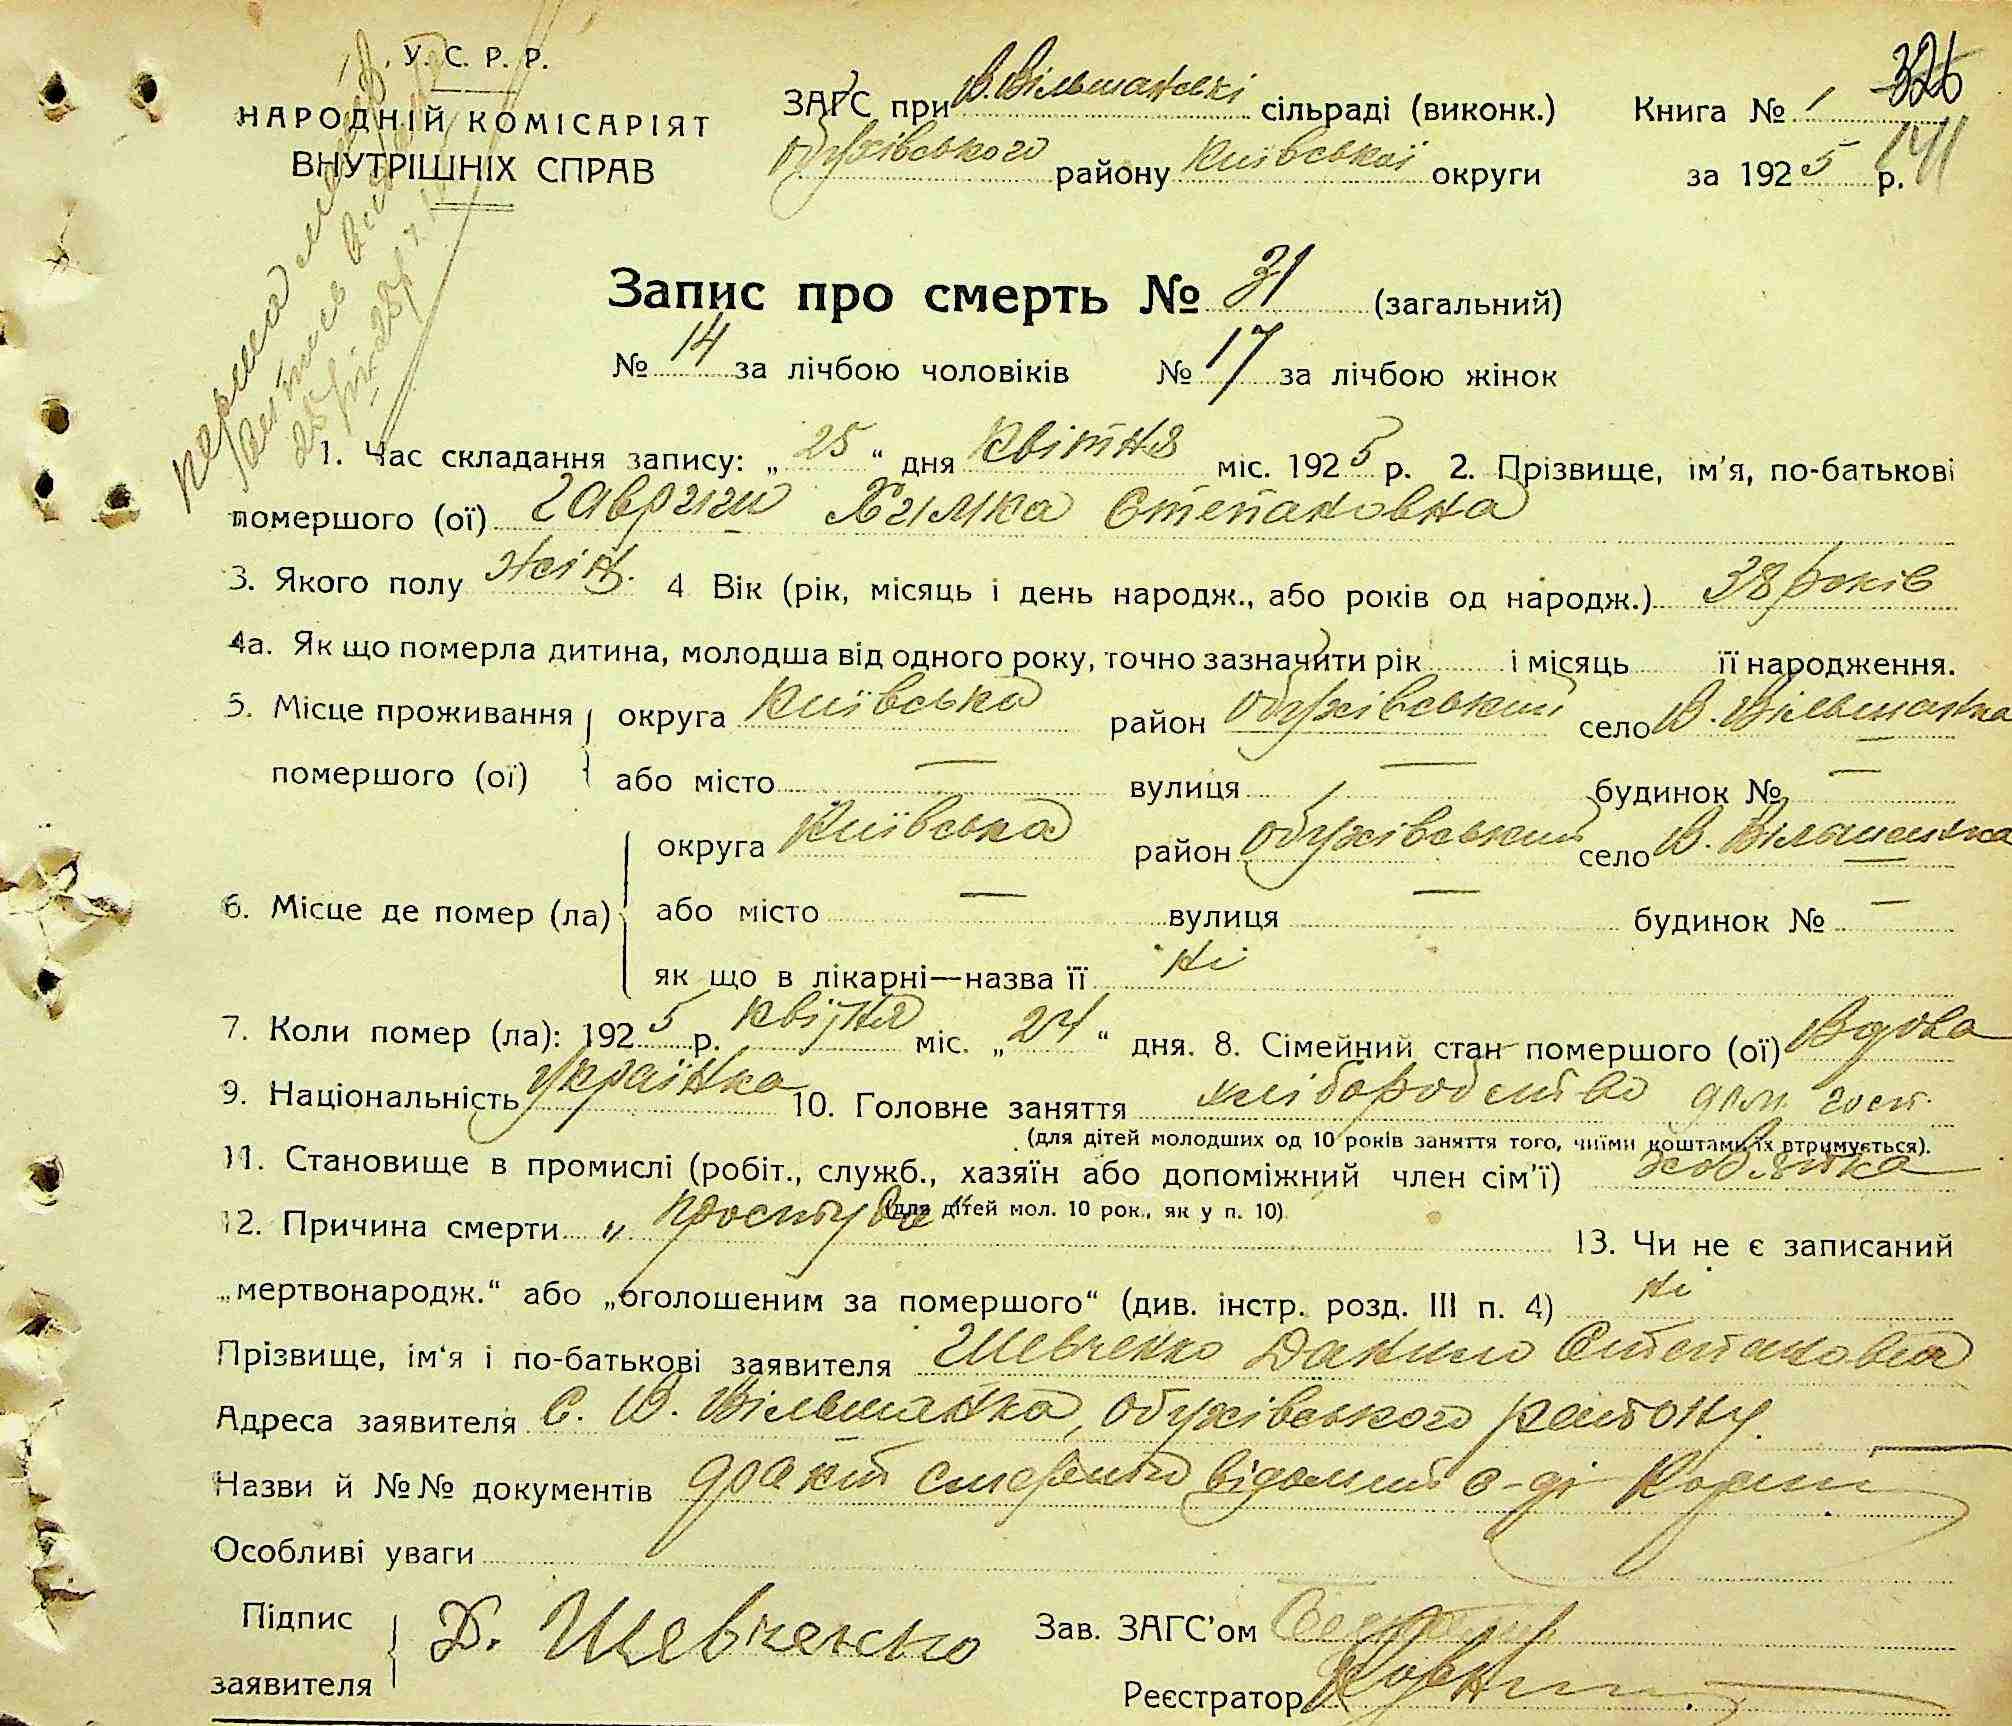 У. С. Р. Р.
НАРОДНІЙ КОМІСАРІЯТ
ВНУТРІШНІХ СПРАВ
ЗАГС при В. Вільшанські сільраді (виконк.)
обухівського району Київської округи
Книга № 1 326
за 1925 р. 141
Запис про смерть № 31 (загальний)
№ 14 за лічбою чоловіків № 17 за лічбою жінок
1. Час складання запису: „25“ дня Квітня міс. 1925 р. 2. Прізвище, ім'я, по-батькові
помершого (ої) Химка Степановна
3. Якого полу жін. 4 Вік (рік, місяць і день народж., або років од народж.) 38 років
4а. Як що померла дитина, молодша від одного року, точно зазначити рік і місяць її народження.
5. Місце проживання округа Київська район обухівський село В. Вільшанка
помершого (ої) або місто — вулиця — будинок № —
округа Київська район обухівський село В. Вільшанка
6. Місце де помер (ла) або місто — вулиця — будинок № —
як що в лікарні—назва її ні
7. Коли помер (ла): 1925 р. квітня міс. „24“ дня. 8. Сімейний стан помершого (ої) Вдова
9. Національність Українка 10. Головне заняття хліборобство дом. госп.
(для дітей молодших од 10 років заняття того, чиїми коштами їх втримується).
11. Становище в промислі (робіт., служб., хазяїн або допоміжний член сім'ї)
(для дітей мол. 10 рок., як у п. 10)
12. Причина смерти „простуда“ 13. Чи не є записаний
„мертвонародж.“ або „оголошеним за помершого“ (див. інстр. розд. III п. 4) ні
Прізвище, ім'я і по-батькові заявителя Шевченко Данило Степанович
Адреса заявителя С. В. Вільшанка, обухівського району.
Назви й №№ документів факт смерти відомий
Особливі уваги
Підпис заявителя Д. Шевченко
Зав. ЗАГС'ом
Реєстратор